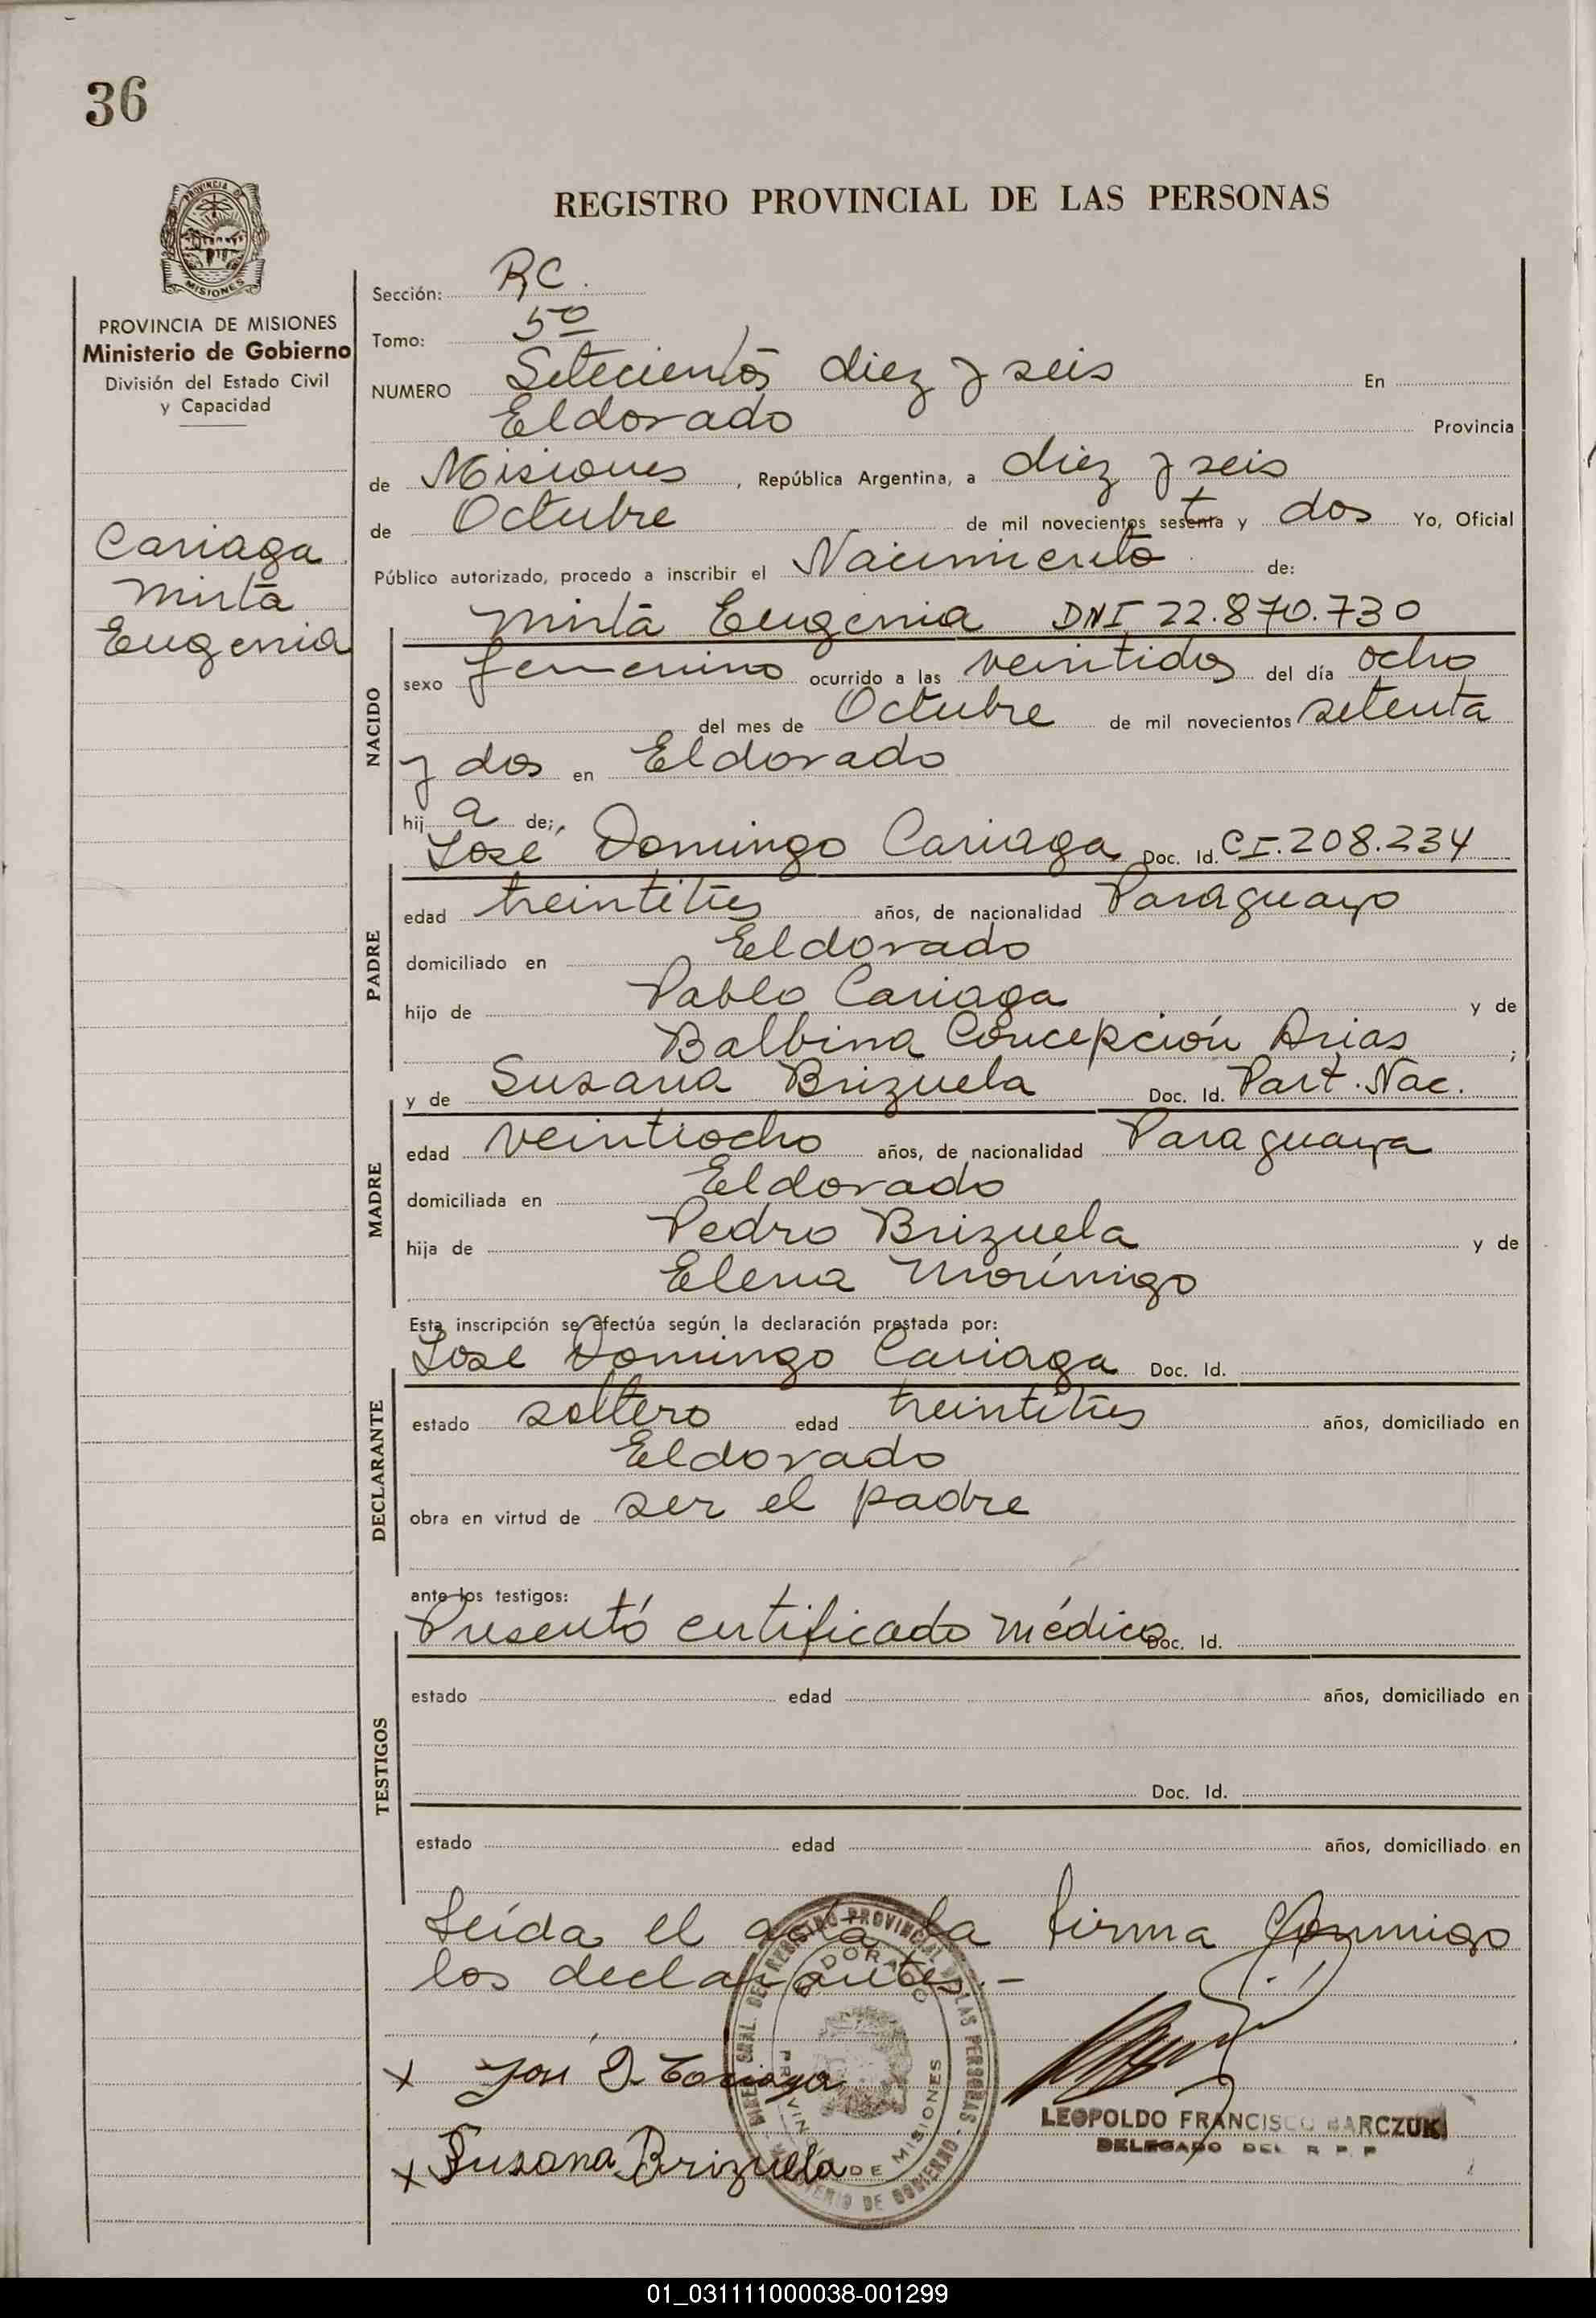 36
REGISTRO PROVINCIAL DE LAS PERSONAS
PROVINCIA DE MISIONES
MISIONES
PROVINCIA DE MISIONES
Ministerio de Gobierno
División del Estado Civil
y Capacidad
Cariaga
Mirta
Eugenia
Sección: RC.
Tomo: 5º
NUMERO Setecientos diez y seis En
Eldorado Provincia
de Misiones, República Argentina, a diez y seis
de Octubre de mil novecientos setenta y dos Yo, Oficial
Público autorizado, procedo a inscribir el Nacimiento de:
Mirta Eugenia DNI 22.870.730
NACIDO
sexo femenino ocurrido a las veintidos del día ocho
del mes de Octubre de mil novecientos setenta
y dos en Eldorado
hij a de;,
José Domingo Cariaga Doc. Id. CI.208.234
PADRE
edad treintitres años, de nacionalidad Paraguayo
domiciliado en Eldorado
hijo de Pablo Cariaga y de
Balbina Concepción Arias ;
y de Susana Brizuela Doc. Id. Part. Nac.
MADRE
edad veintiocho años, de nacionalidad Paraguaya
domiciliada en Eldorado
hija de Pedro Brizuela y de
Elena Morínigo
Esta inscripción se efectúa según la declaración prestada por:
José Domingo Cariaga Doc. Id.
DECLARANTE
estado soltero edad treintitres años, domiciliado en
Eldorado
obra en virtud de ser el padre
ante los testigos:
Presentó certificado médico Doc. Id.
TESTIGOS
estado edad años, domiciliado en
Doc. Id.
estado edad años, domiciliado en
Leída el acta la firma conmigo
los declarantes.-
REGISTRO PROVINCIAL DE LAS PERSONAS
ELDORADO
PROVINCIA DE MISIONES
MINISTERIO DE GOBIERNO
x José D. Cariaga
x Susana Brizuela
LEOPOLDO FRANCISCO BARCZUK
DELEGADO DEL R. P. P
01_031111000038-001299